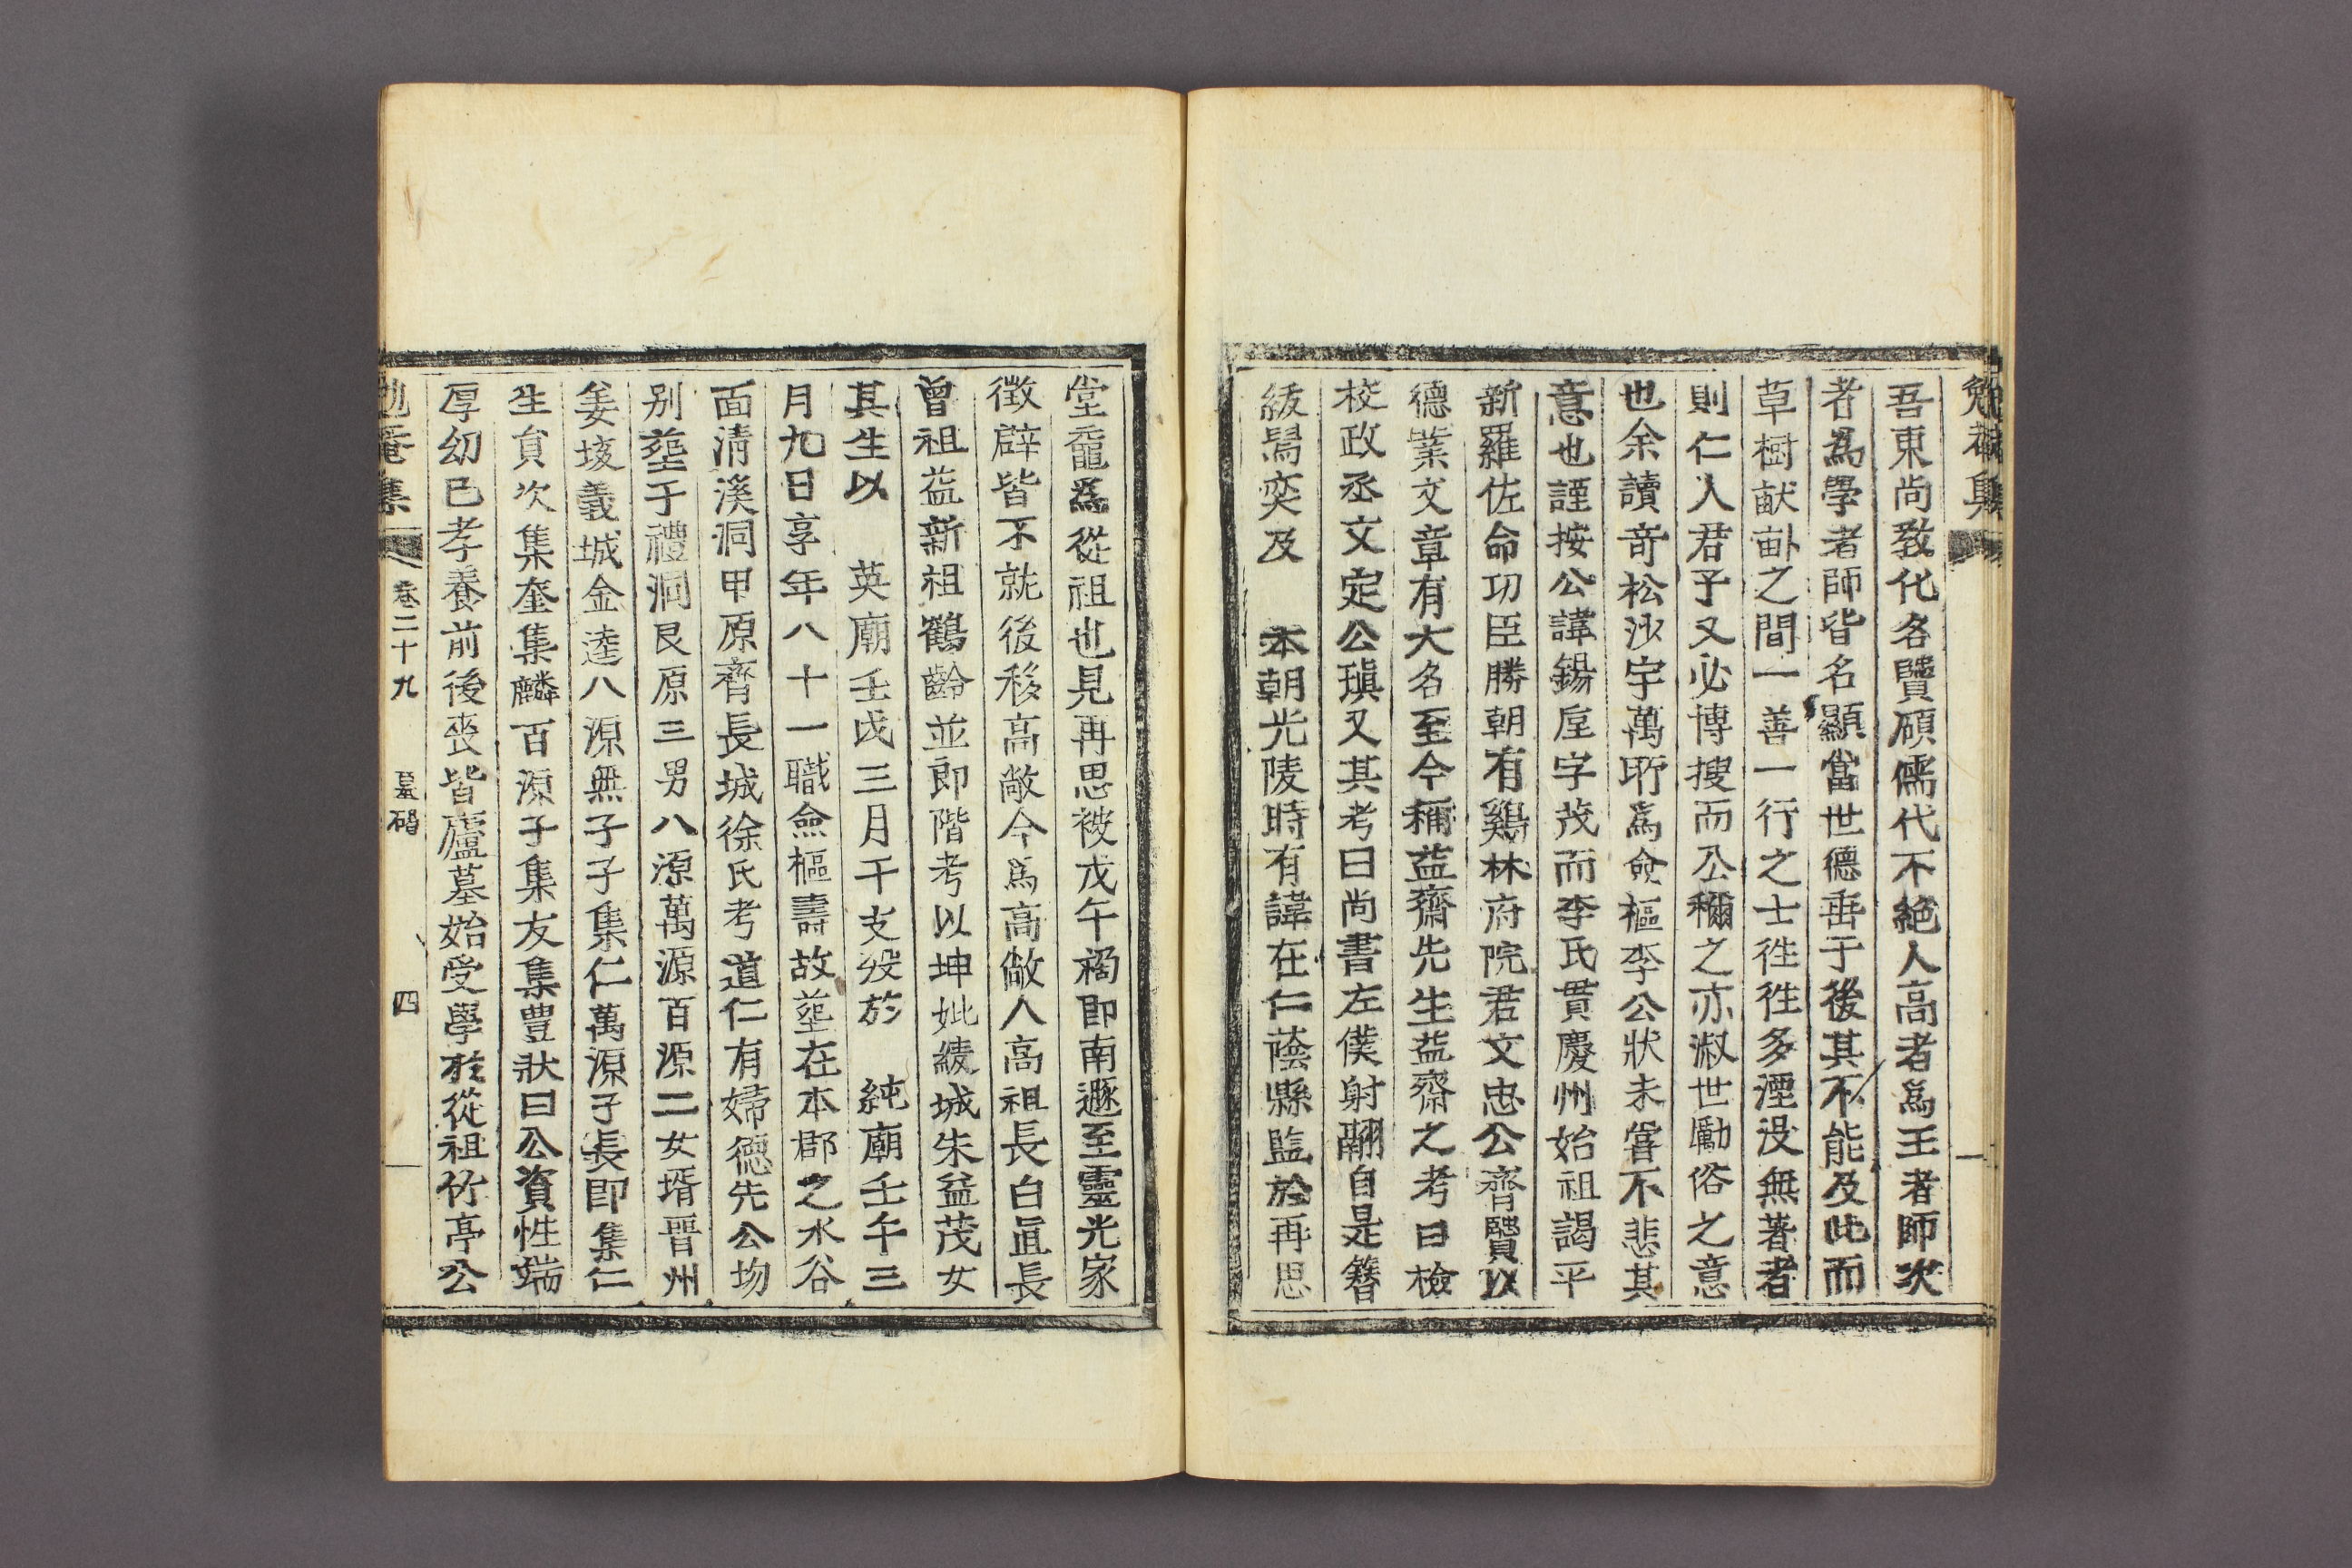 勉菴集
吾東尙敎化各賢碩儒代不絶人高者爲王者師次
者爲學者師皆名顯當世德垂于後其不能及此而
草樹畎畝之間一善一行之士徃徃多湮没無著者
則仁人君子又必博搜而公穪之亦淑世勵俗之意
也余讀奇松沙宇萬所爲僉樞李公狀未嘗不悲其
意也謹按公諱錫垕字茂而李氏貫慶州始祖謁平
新羅佐命功臣勝朝有鷄林府院君文忠公齊賢以
德業文章有大名至今稱益齋先生益齋之考曰檢
校政丞文定公瑱又其考曰尙書左僕射翮自是簪
紱舄奕及 本朝光陵時有諱在仁蔭縣監於再思
堂黿爲從祖也見再思被戊午禍卽南遯至靈光家
徵辟皆不就後移高敞今爲高敞人高祖長白眞長
曾祖益新祖鶴齡並郎階考以坤妣綾城朱益茂女
其生以 英廟壬戌三月干支歿於 純廟壬午三
月九日享年八十一職僉樞壽故葬在本郡之水谷
面淸溪洞甲原齊長城徐氏考道仁有婦德先公歿
別葬于禮洞艮原三男八源萬源百源二女壻晋州
姜垵義城金逵八源無子子集仁萬源子長卽集仁
生員次集奎集麟百源子集友集豊狀曰公資性端
厚幼已孝養前後喪皆廬墓始受學於從祖竹亭公
勉菴集 卷二十九 墓碣 四